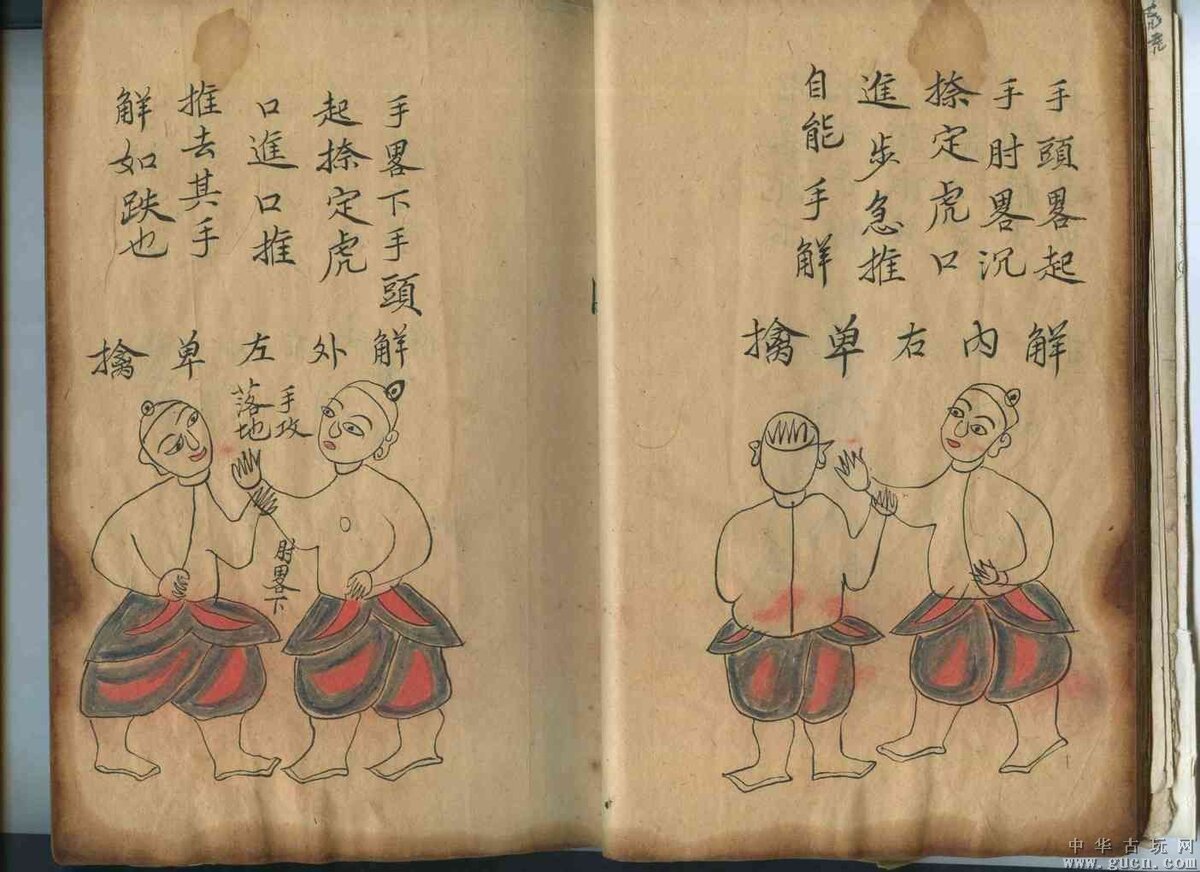 手頭畧起
手肘畧沉
捺定虎口
進步急推
自能手解
解內右单擒
手畧下手頭
起捺定虎
口進口推
推去其手
解如跌也
解外左单擒
手攻
落地
肘畧下
中华古玩网
www.gucn.com